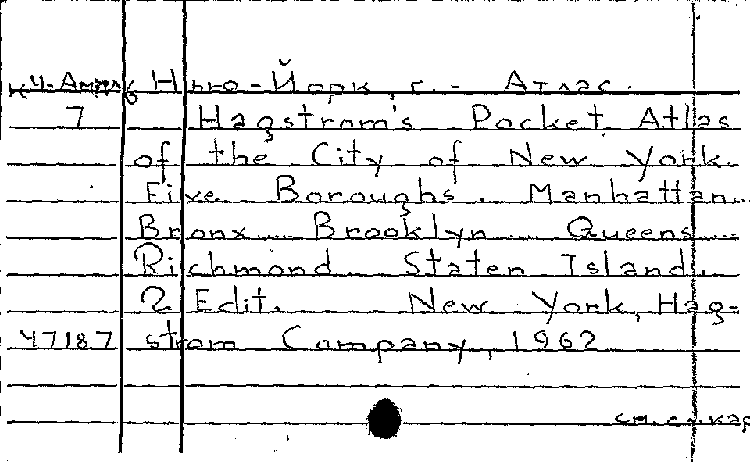 Нью-Йорк, г. - Атлас.
7 Hagstrom's Pocket Atlas
of the City of New York.
Five Boroughs. Manhattan.
Bronx Brooklyn Queens
Richmond Staten Island.
2 Edit. New York, Hag-
47187 strom Company, 1962
см.